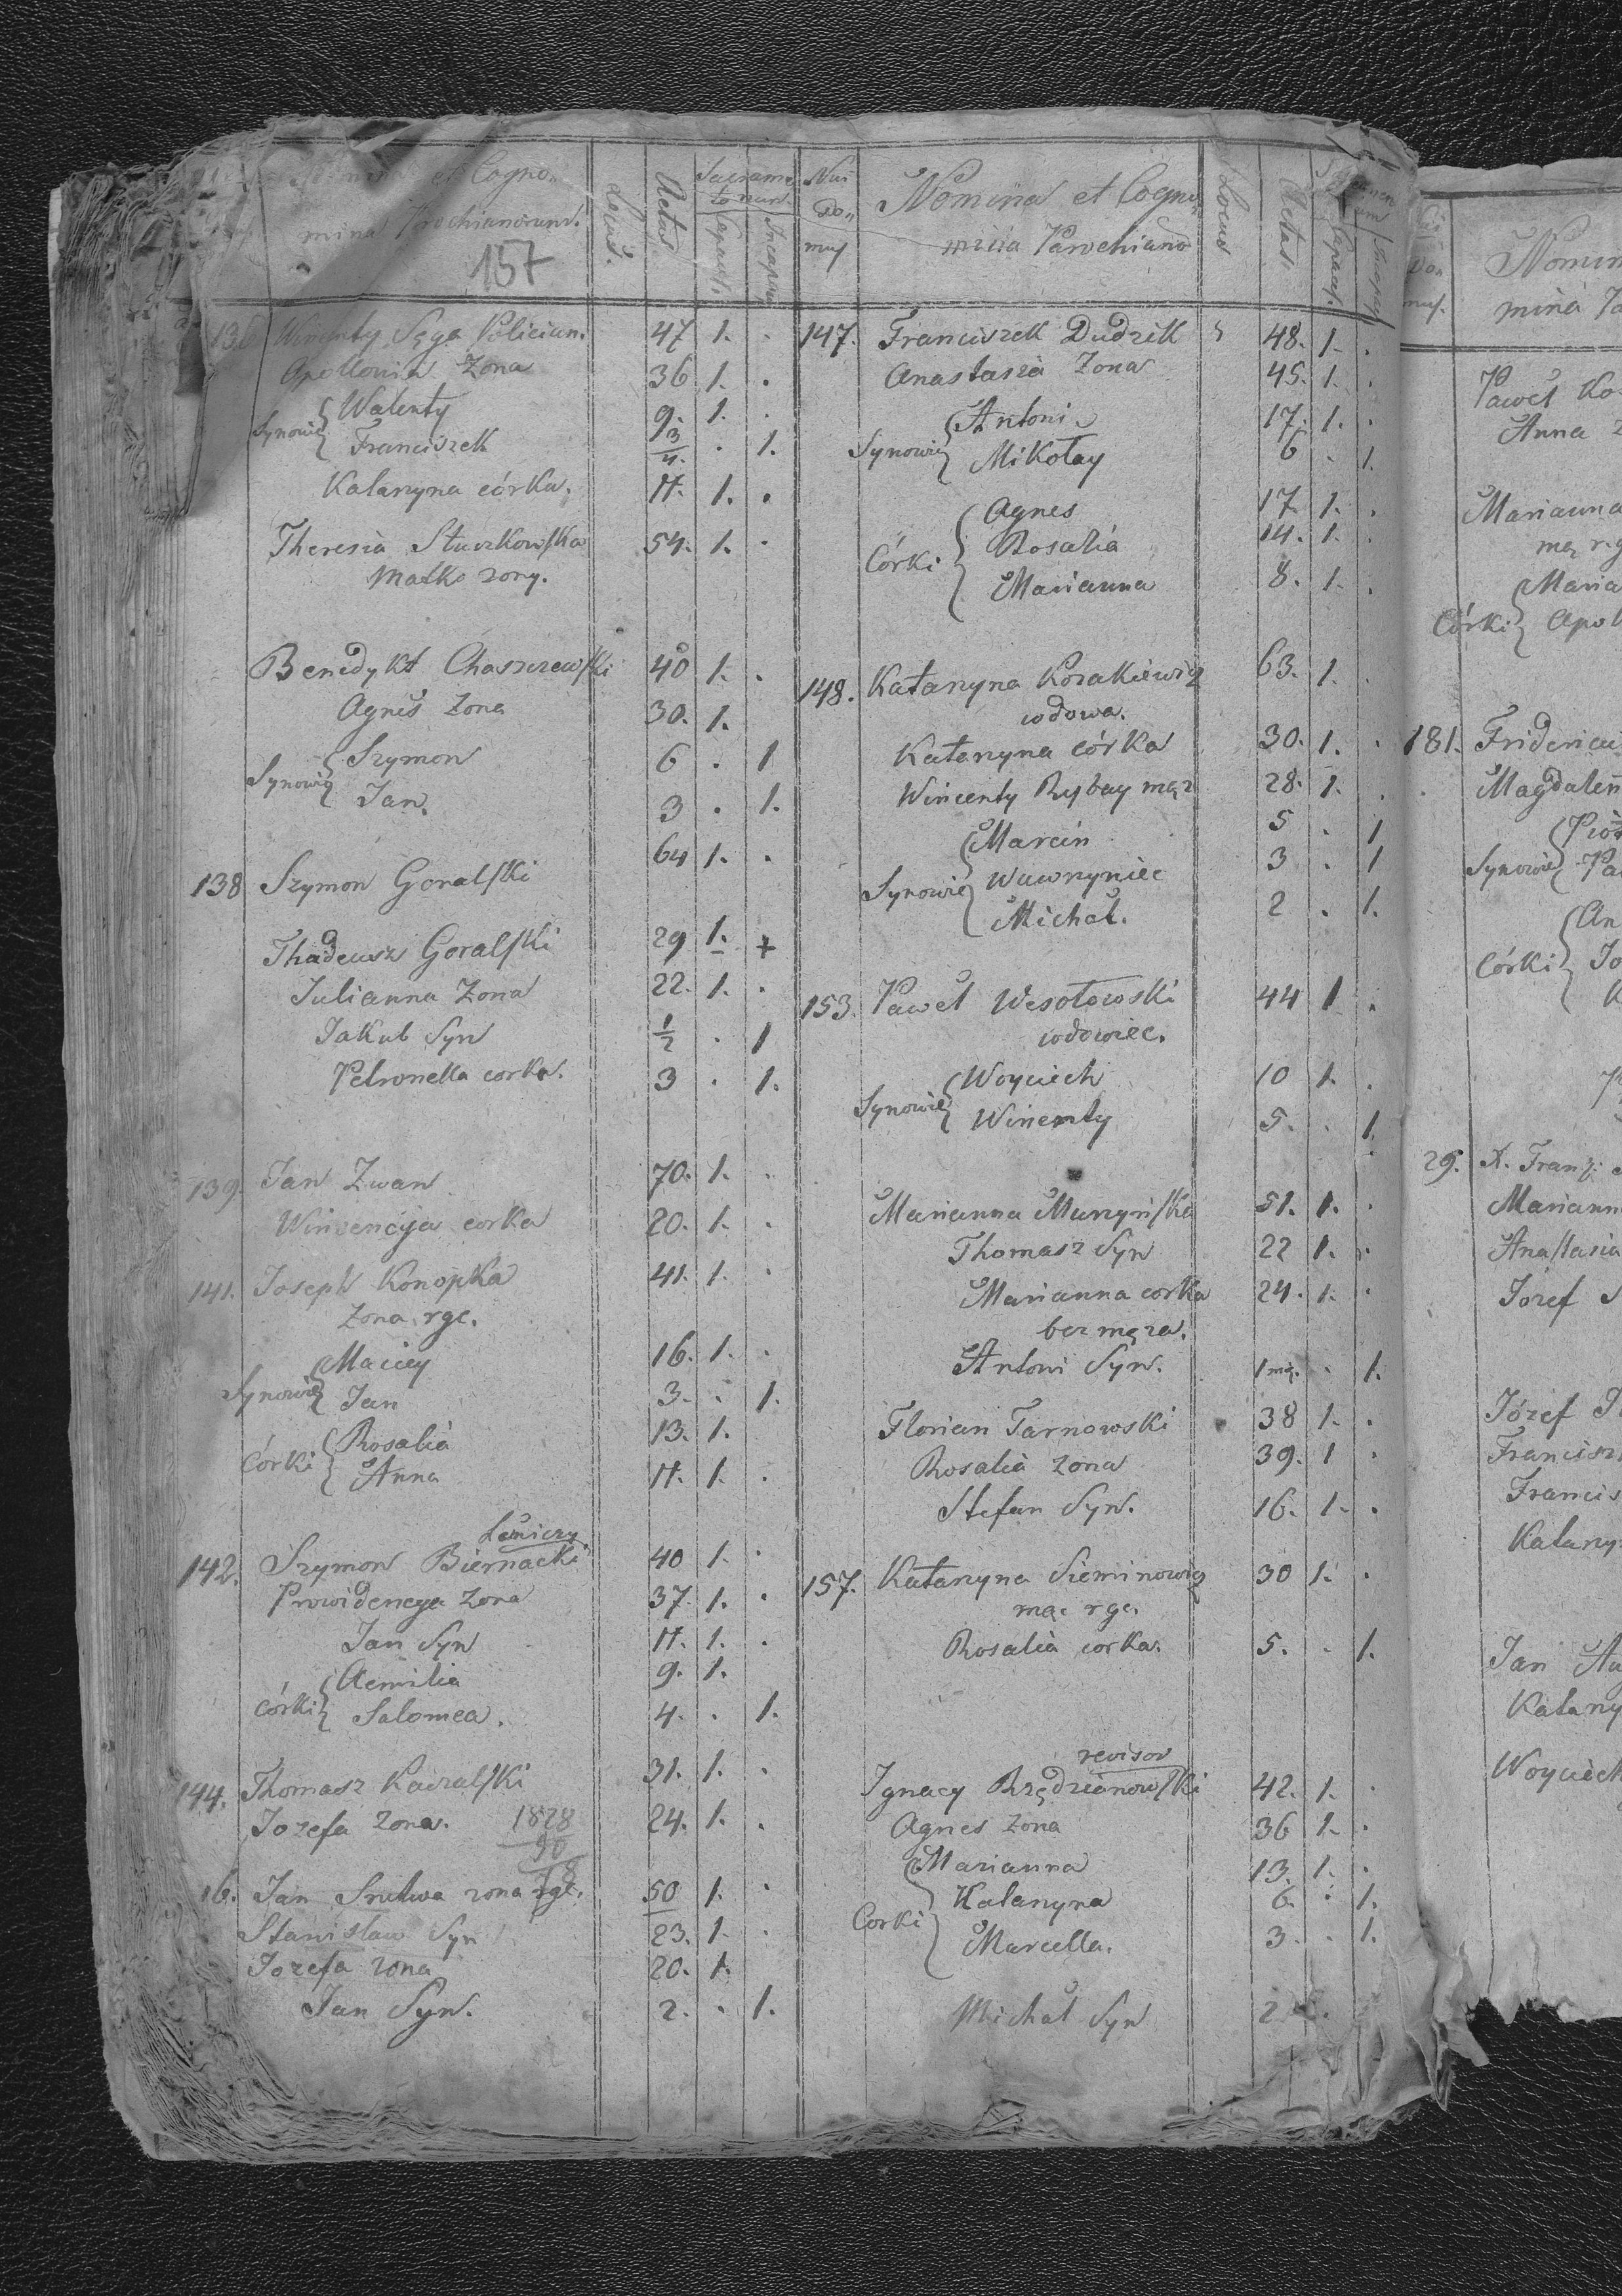 et Cogno„
mina Parochianorum.
157
Locus.
Aetas
Sacramen
torum
Capaces.
Incapaces
136 Wincenty Sęga Polician.
47 1. .
Apollonia Zona 36 1. .
Synowie { Walenty 9. 1. .
Franciszek 3/4. . 1.
Katarzyna córka. 11. 1. .
Theresia Stuczkowska 54. 1. .
Matka zony.
Benedykt Chaszczewski 40 1. .
Agnes Zona 30. 1.
Synowie { Szymon 6 . 1
Jan. 3 . 1.
138 Szymon Goralski 64 1. .
Thadeusz Goralski 29 1. +
Julianna Zona 22. 1. .
Jakub Syn 1/2 . 1
Petronella corka. 3 . 1.
139. Jan Zwan 70. 1. .
Winzencyja corka 20. 1. .
141. Joseph Konopka 41. 1. .
Zona rgc.
Synowie { Maciey 16. 1. .
Jan 3. . 1.
Córki { Rosalia 13. 1.
Anna 11. 1. .
142. Szymon Biernacki 40 1. .
Prowidencya Zona 37. 1. .
Jan Syn 11. 1. .
córki { Aemilia 9. 1.
Salomea. 4. . 1.
144. Thomasz Kaczalski 31. 1. .
Jozefa Zona. 24. 1. .
1828
50
78
16. Jan Srutwa zona rgc. 50 1. .
Stanislaw Syn 23. 1. .
Jozefa zona 20. 1.
Jan Syn. 2. . 1.
Nu
Do„
mus
Nomina et Cogno„
mina Parochiano
Locus
Aetas.
147. Franciszek Dudzik 48. 1. .
Anastasia Zona 45. 1. .
Synowie { Antoni 17. 1. .
Mikołay 6 . 1.
Córki { Agnes 17. 1. .
Rosalia 14. 1. .
Marianna 8. 1. .
148. Katarzyna Kozakiewicz 63. 1. .
wdowa.
Katarzyna córka 30. 1. .
Wincenty Rybay mąz 28. 1. .
Synowie { Marcin 5 . 1
Wawrzyniec 3 . 1
Michał. 2 . 1.
153. Paweł Wesołowski 44 1 .
wdowiec.
Synowie { Woyciech 10 1. .
Wincenty 5. . 1.
Marianna Murzyńska 51. 1. .
Thomasz Syn 22 1. .
Marianna corka 24. 1. .
bez męza.
Antoni Syn. . 1.
Florian Tarnowski 38 1. .
Rosalia zona 39. 1 .
Stefan Syn. 16. 1. .
157. Katarzyna Sieminowicz 30 1. .
mąz rgc.
Rosalia corka. 5. . 1.
revisor
Ignacy Rzędzianowski 42. 1. .
Agnes zona 36 1. .
Corki { Marianna 13. 1. .
Katarzyna 6. . 1.
Marcella. 3. . 1.
Michał Syn 2
Paweł Ko
Anna
Marianna
mąz rg
Córki { Maria
Apol
181. Fridericu
Magdalen
Synowie { Piot
Pa
Córki { An
Jo
K
29. X. Franz.
Mariann
Anastasia
Jozef
Józef
Francisz
Francis
Katarzy
Jan
Katarzy
Woyciech